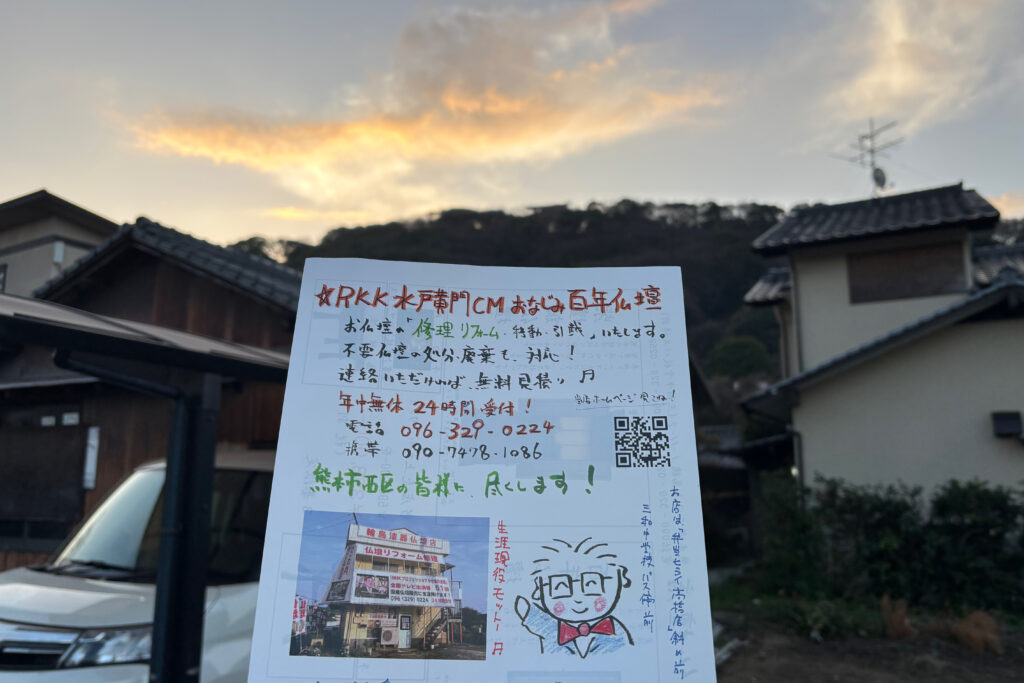 ☆RKK水戸黄門CMおなじみ百年仏壇
お仏壇の修理リフォーム、移動、引越、いたします。
不要仏壇の処分、廃棄も、対応!
連絡いただければ、無料見積り
年中無休 24時間受付!
電話 096-329-0224
携帯 090-7478-1086
当店ホームページ見てね!
熊本市西区の皆様に、尽くします!
輪島漆器仏壇店
仏壇リフォーム修理
096(329)0224
生涯現役モットー
お店は、「弁当のヒライ高橋店」斜め前
三和中学校バス停前